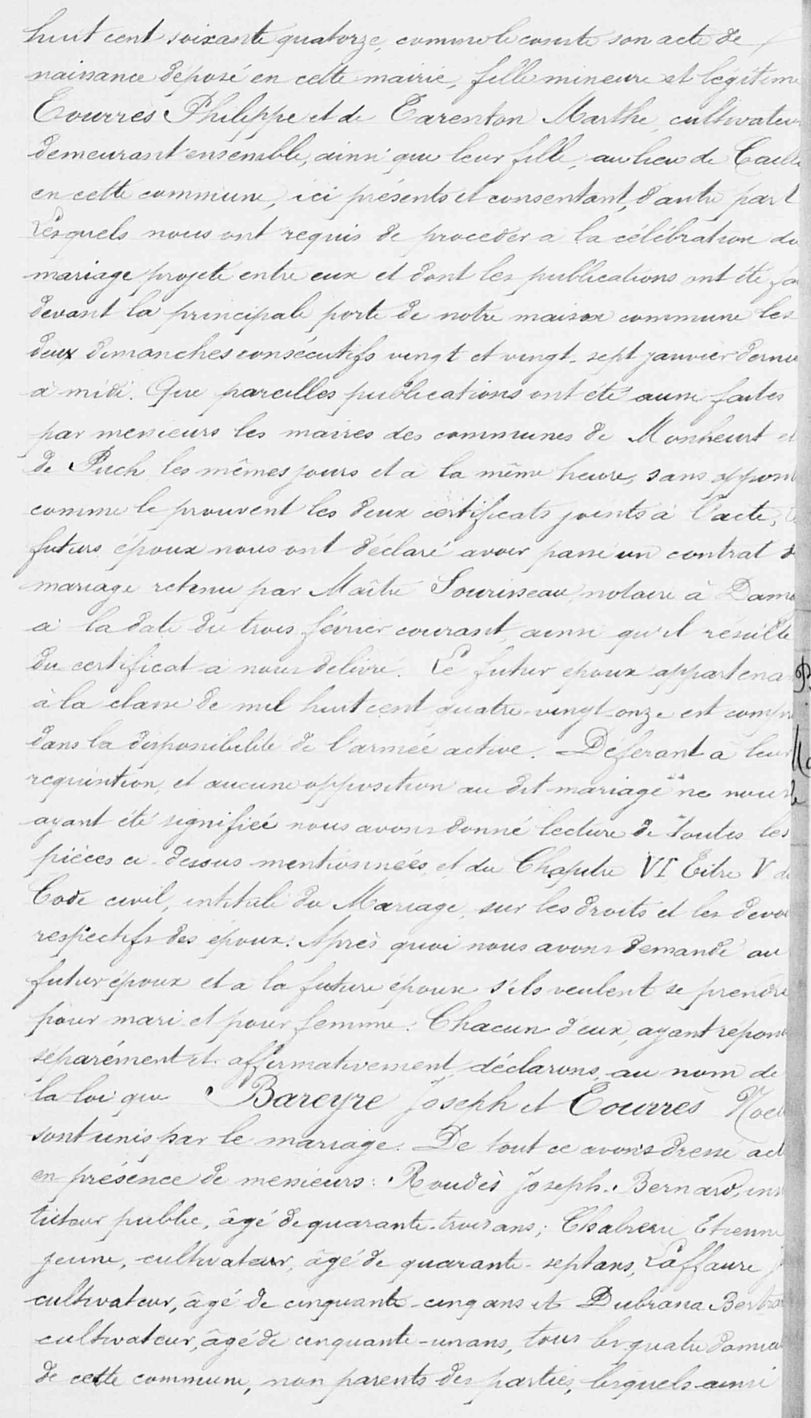 huit cent soixante quatorze, comme le conste son acte de
naissance déposé en cette mairie, fille mineure et légitime
Tourrès Philippe et de Tarenton Marthe, cultivateur
demeurant ensemble, ainsi que leur fille, au lieu de
en cette commune, ici présents et consentant, d'autre part
Lesquels nous ont requis de procéder à la célébration du
mariage projeté entre eux et dont les publications ont été fa
devant la principale porte de notre maison commune les
deux dimanches consécutifs vingt et vingt-sept janvier dernie
à midi. Que pareilles publications ont été aussi faites
par messieurs les maires des communes de Monheurt et
de Puch les mêmes jours et à la même heure, sans opposi
comme le prouvent les deux certificats joints à l'acte,
futurs époux nous ont déclaré avoir passé un contrat d
mariage retenu par Maître Sourisseau notaire à Dama
à la date du trois février courant, ainsi qu'il résulte
du certificat à nous délivré. Le futur époux appartena
à la classe de mil huit cent quatre-vingt-onze est compri
dans la disponibilité de l'armée active. Déférant à leur
requisition, et aucune opposition au dit mariage ne nous
ayant été signifiée nous avons donné lecture de toutes les
pièces ci-dessus mentionnées, et du Chapitre VI Titre V d
Code civil, intitulé du Mariage, sur les droits et les devoi
respectifs des époux. Après quoi nous avons demandé au
futur époux et à la future épouse s'ils veulent se prendre
pour mari et pour femme. Chacun d'eux, ayant répon
séparément et affirmativement, déclarons au nom de
la loi que Bareyre Joseph et Tourrès Noe
sont unis par le mariage. De tout ce avons dressé act
en présence de messieurs: Roudès Joseph-Bernard, ins
tituteur public, âgé de quarante-trois ans; Etienne
jeune, cultivateur, âgé de quarante-sept ans, Laffaure J
cultivateur, âgé de cinquante-cinq ans et Dubrana Bertra
cultivateur, âgé de cinquante-un ans, tous les quatre domici
de cette commune, non parents des parties, lesquels ainsi